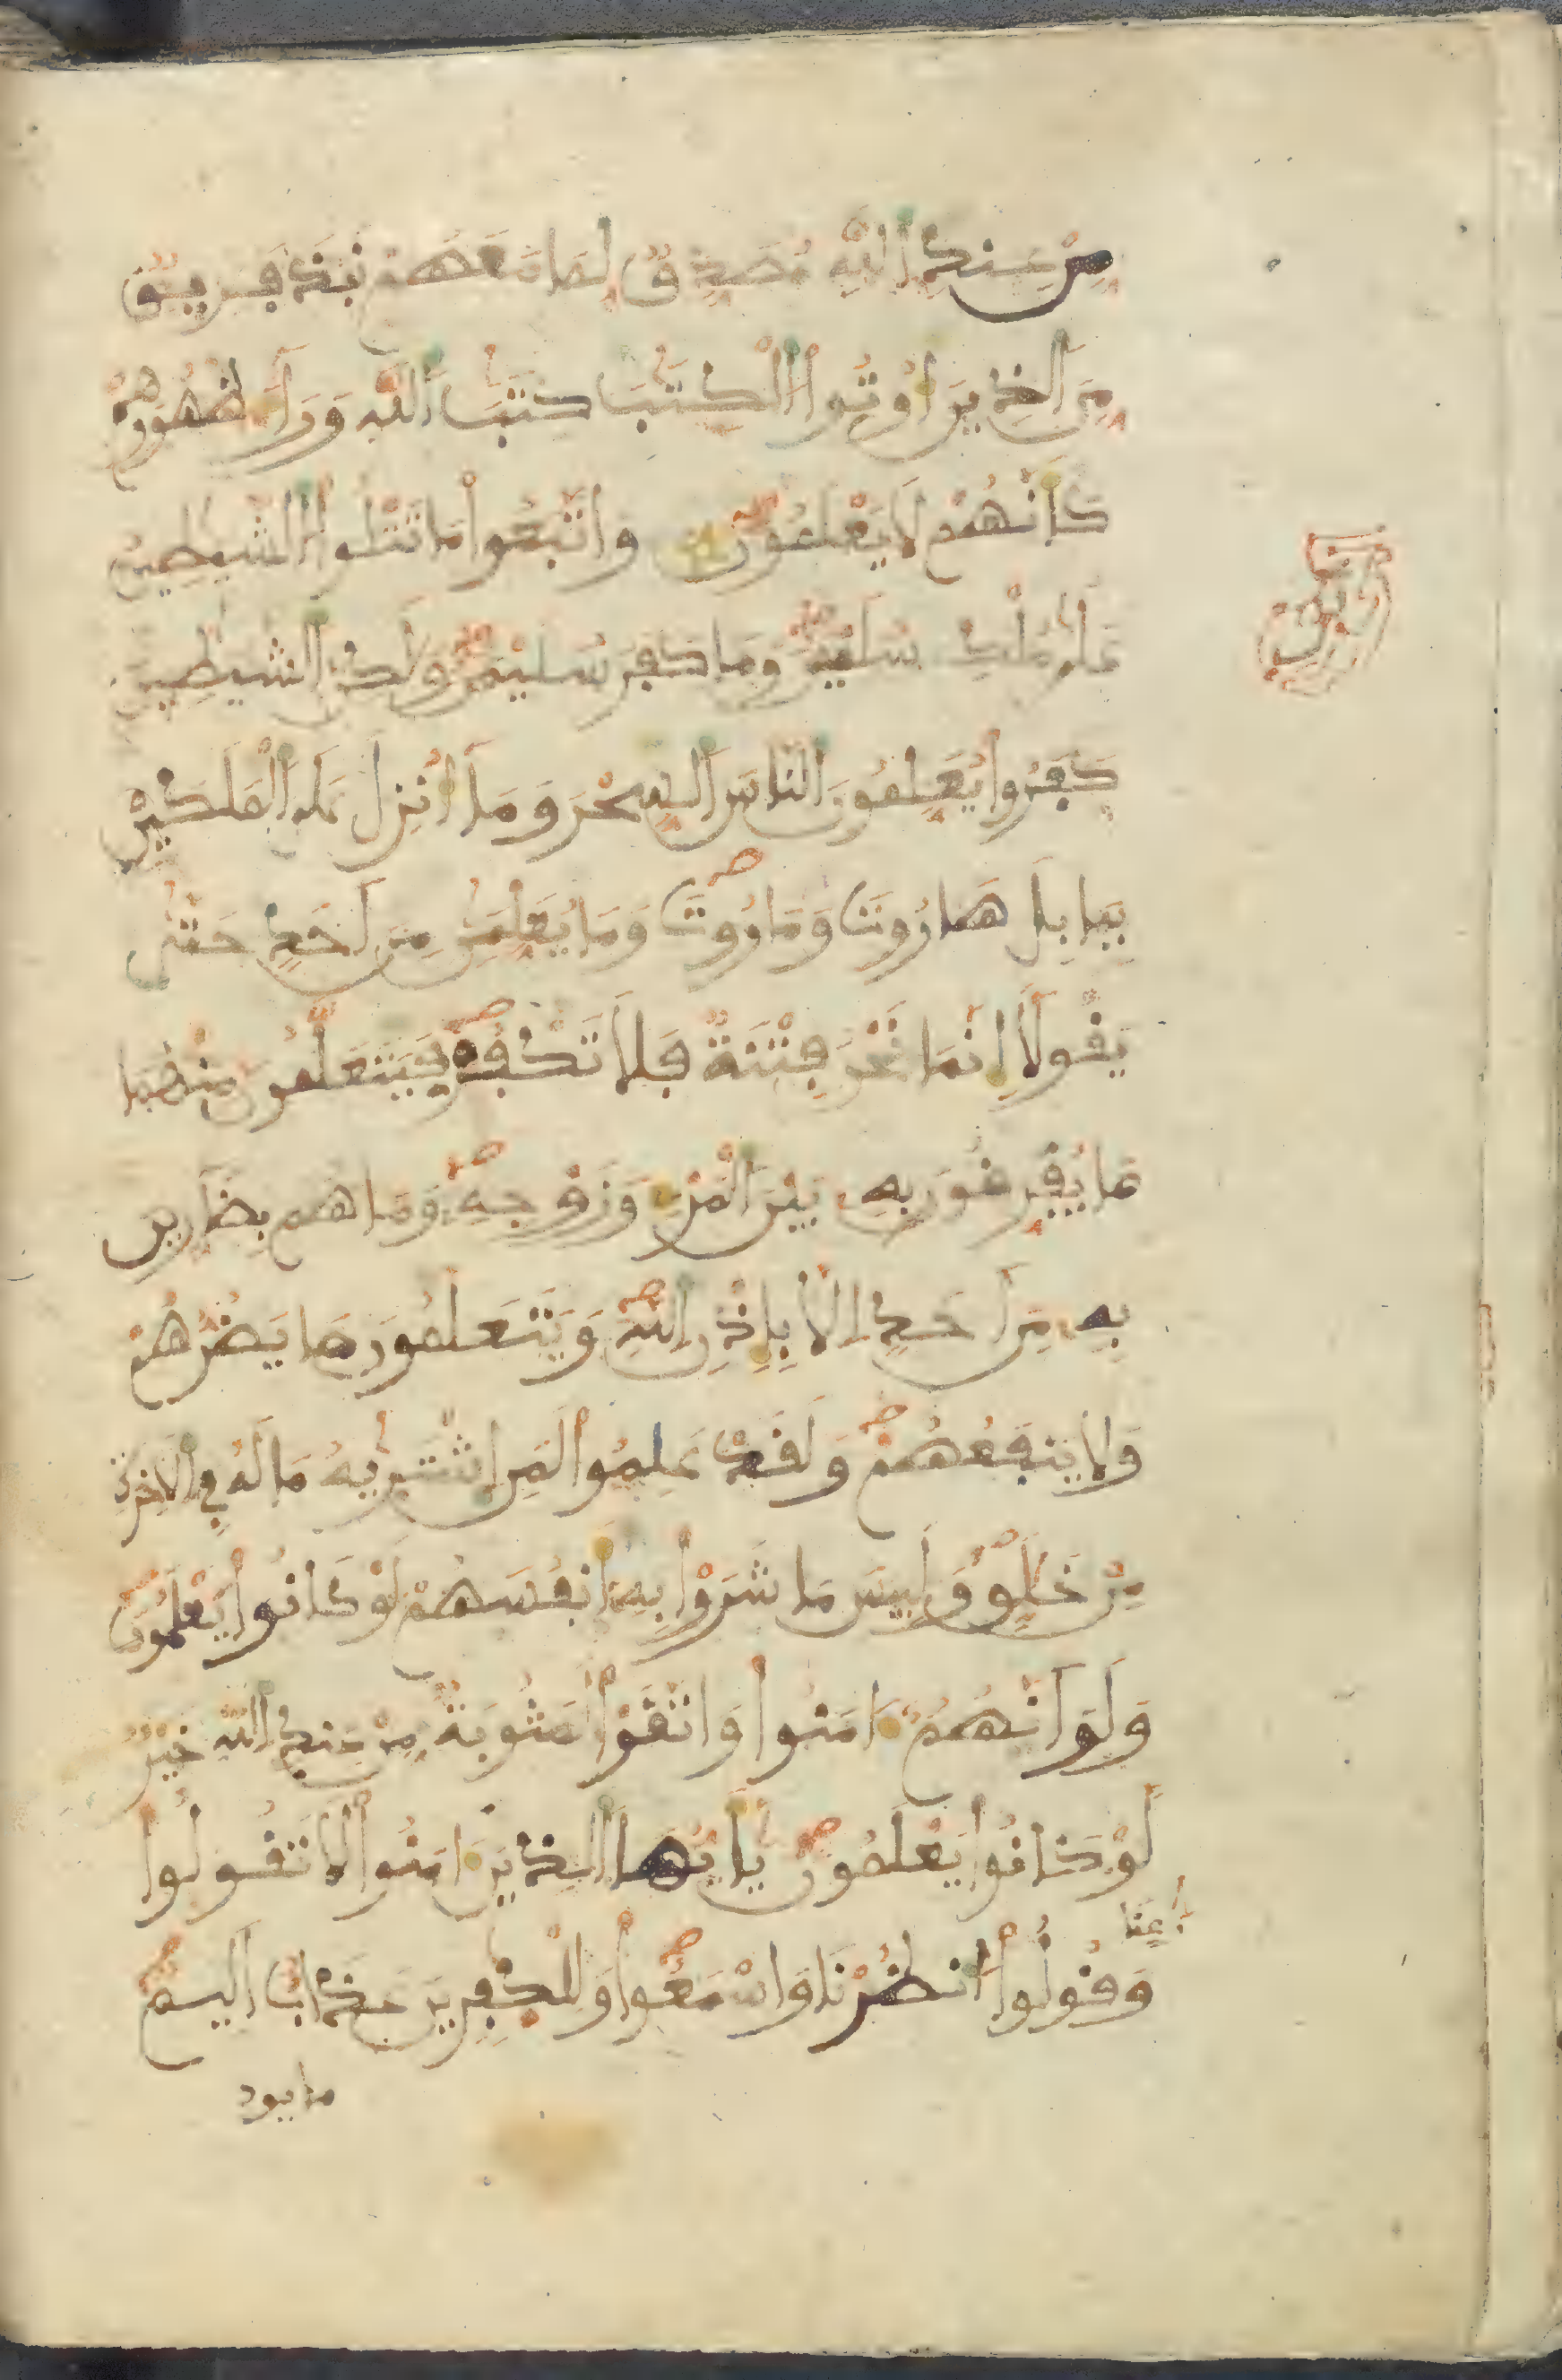 مِنْ عِندِ اَللَّهِ مُصَدِّقٌ لِّمَا مَعَهُمْ نَبَذَ فَرِيقٌ
مِّنَ اَلذِينَ أُوتُوا اْلْكِتَٰبَ كِتَٰبَ اَللَّهِ وَرَآءَ ظُهُورِهِمْ
كَأَنَّهُمْ لَا يَعْلَمُونَ وَاتَّبَعُوا مَا تَتْلُوا اْلشَّيَٰطِينُ
عَلَىٰ مُلْكِ سُلَيْمَٰنَ وَمَا كَفَرَ سُلَيْمَٰنُ وَلَٰكِنَّ اَلشَّيَٰطِينَ
كَفَرُوا يُعَلِّمُونَ اَلنَّاسَ اَلسِّحْرَ وَمَآ أُنزِلَ عَلَى اَلْمَلَكَيْنِ
بِبَابِلَ هَارُوتَ وَمَارُوتَ وَمَا يُعَلِّمَٰنِ مِنَ اَحَدٍ حَتَّىٰ
يَقُولَآ إِنَّمَا نَحْنُ فِتْنَةٌ فَلَا تَكْفُرْ فَيَتَعَلَّمُونَ مِنْهُمَا
مَا يُفَرِّقُونَ بِهِ بَيْنَ اَلْمَرْءِ وَزَوْجِهِ وَمَا هُم بِضَآرِّينَ
بِهِ مِنَ اَحَدٍ اِلَّا بِإِذْنِ اِللَّهِ وَيَتَعَلَّمُونَ مَا يَضُرُّهُمْ
وَلَا يَنفَعُهُمْ وَلَقَدْ عَلِمُوا لَمَنِ اِشْتَرَيٰهُ مَا لَهُ فِي اِلَاخِرَةِ
مِنْ خَلَٰقٍ وَلَبِيسَ مَا شَرَوْا بِهِ أَنفُسَهُمْ لَوْ كَانُوا يَعْلَمُونَ
وَلَوَ اَنَّهُمُ ءَامَنُوا وَاتَّقَوْا لَمَثُوبَةٌ مِّنْ عِندِ اِللَّهِ خَيْرٌ
لَّوْ كَانُوا يَعْلَمُونَ يَٰأَيُّهَا اَلذِينَ ءَامَنُوا لَا تَقُولُوا
رَٰعِنَا
وَقُولُوا اُنظُرْنَا وَاسْمَعُوا وَلِلْكَٰفِرِينَ عَذَابٌ اَلِيمٌ
ما يود